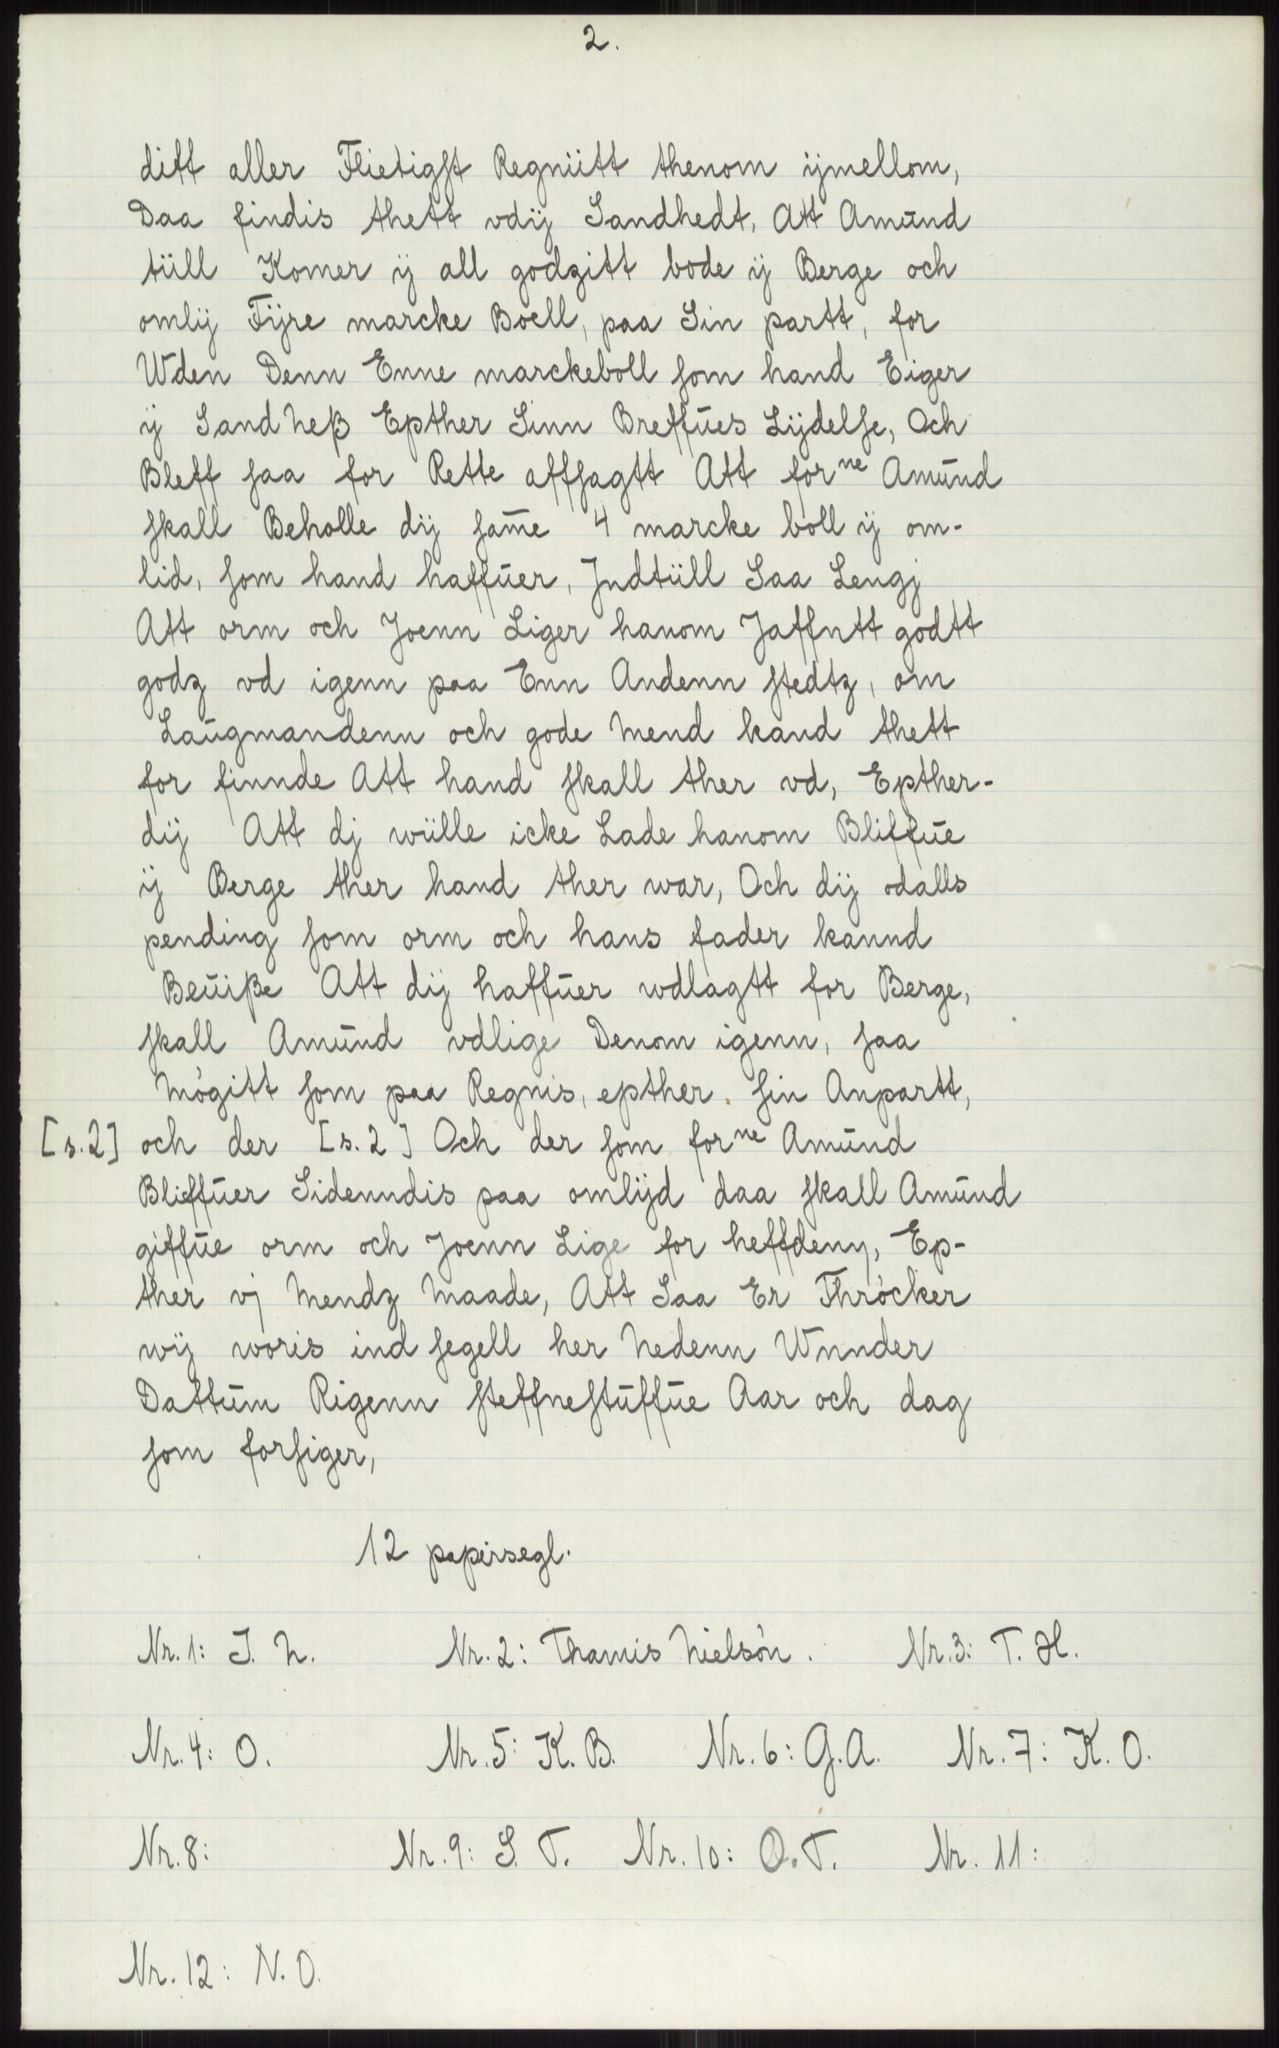 2.
diff aller Flietigst Regniitt thenom ijmellom,
Daa findis thett vdij Sandhedt, Att Amŭnd
tiill Komer ij all godzitt bode ij Berge och
omlij Fijre marcke Boell, paa Sin partt, for
Wden Denn Enne marckeboll som hand Eiger
ij Sand Neß Epther Sinn Breffŭes Lijdelse, Och
Bleff saa for Rette affsagtt Att forne Amŭnd
skall Beholle dij sam̄e 4 marcke boll ij om-
lid, som hand haffŭer, Jndtiill Saa Lengj
Att orm och Joenn Liger hanom Jaffntt godtt
godz vd igenn paa Enn Andenn stedtz, om
Laŭgmandenn och gode Mend kand thett
for finnde Att hand skall ther vd, Epther-
dij Att dj wiille icke Lade hanom Bliffŭe
ij Berge ther hand ther war, Och dij odalls
pending som orm och hans fader kannd
Beŭiße Att dij haffŭer wdlagtt for Berge,
skall Amŭnd vdlige Denom igenn, saa
Mögitt som paa Regnis, epther. sin Anpartt,
[s.2] och der [s.2] Och der som forne Amŭnd
Blieffŭer Sidenndis paa omlijd daa skall Amŭnd
giffŭe orm och Joenn Lige for heffdeny, Ep-
ther vj Mendz Maade, Att Saa Er Thröcker
wij woris ind segell her Nedenn Wnnder
Dattŭm Rigenn steffnestŭffŭe Aar och dag
som forsiger,
12 papirsegl.
Nr. 1: J. N. Nr. 2: Thamis Nielsön. Nr. 3: T. H.
Nr. 4: O. Nr. 5: K. B. Nr. 6: G. A. Nr. 7: K. O.
Nr. 8: Nr. 9: S. T. Nr. 10: O. T. Nr. 11:
Nr. 12: N. O.